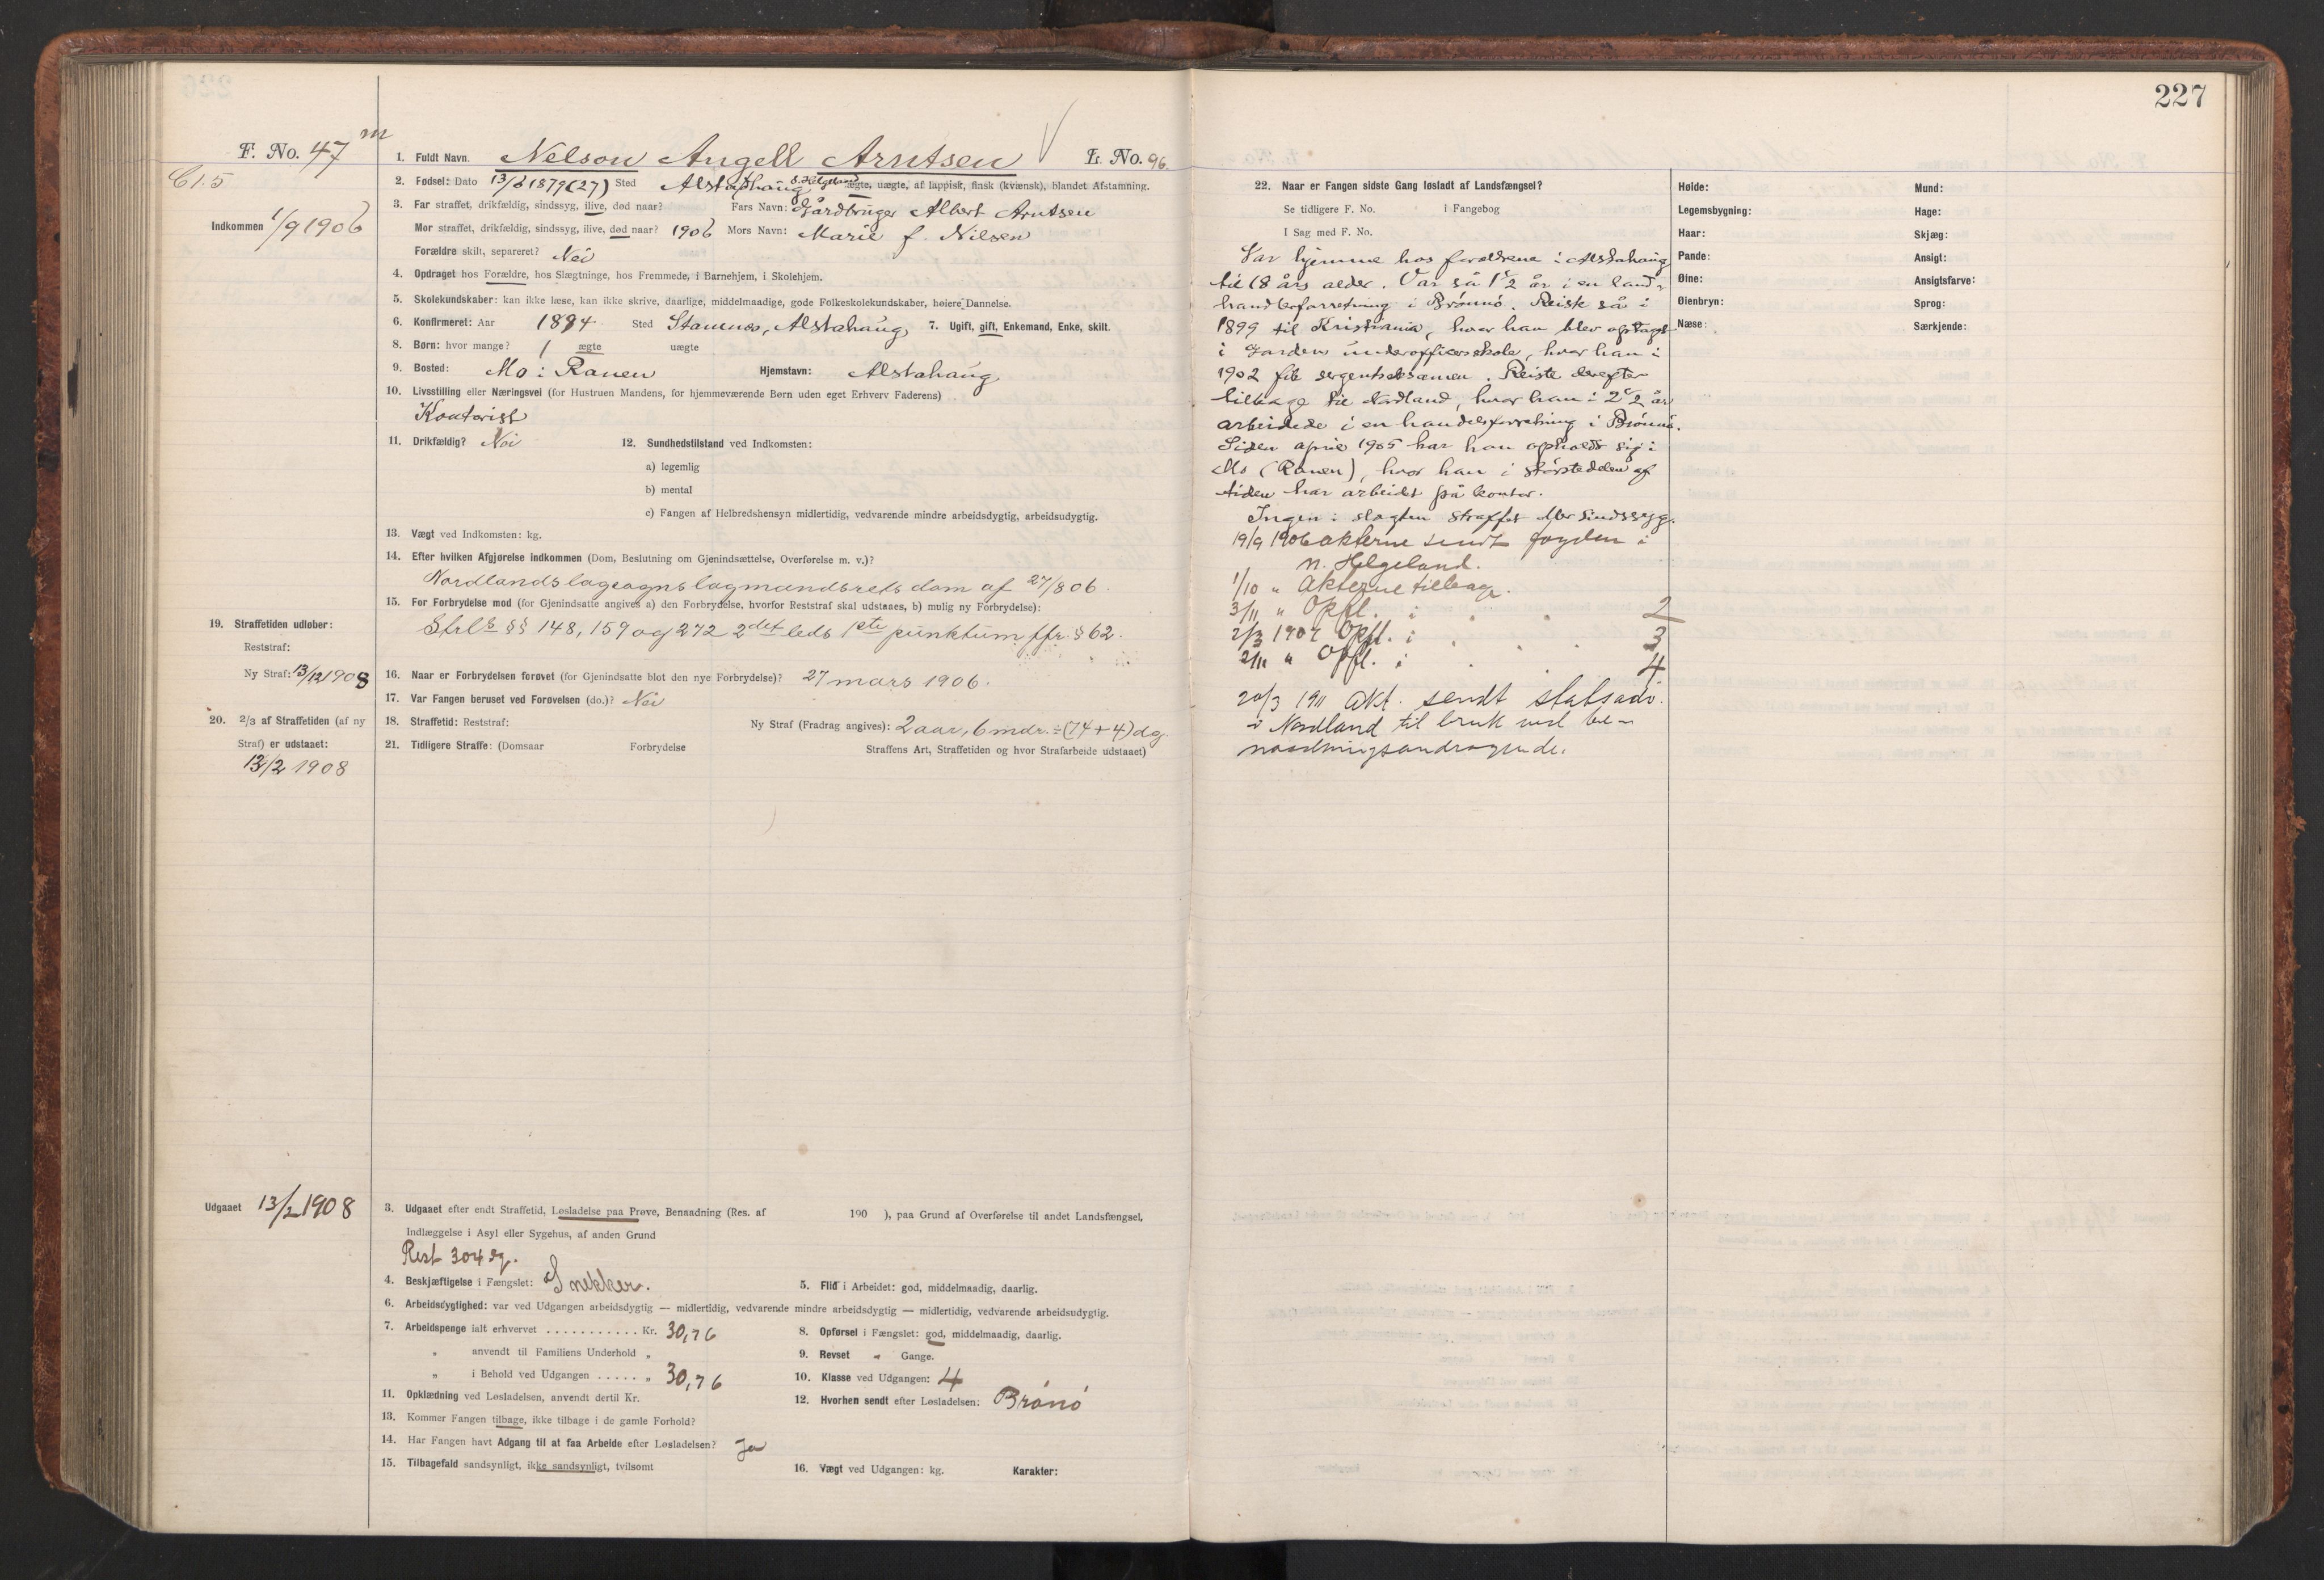 227
F. No. 47 m
Cl. 5
Indkommen 1/9 1906
1. Fuldt Navn. Nelson Angell Arntsen V L. No. 96.
2. Fødsel: Dato 13/6 1879 (27) Sted Alstahaug S. Helgeland ægte, uægte, af lappisk, finsk (kvænsk), blandet Afstamning.
3. Far straffet, drikfældig, sindssyg, ilive, død naar? Fars Navn: Gårdbruger Albert Arntsen
Mor straffet, drikfældig, sindssyg, ilive, død naar? 1906 Mors Navn: Marie f. Nilsen
Forældre skilt, separeret? Nei
4. Opdraget hos Forældre, hos Slægtninge, hos Fremmede, i Barnehjem, i Skolehjem.
5. Skolekundskaber: kan ikke læse, kan ikke skrive, daarlige, middelmaadige, gode Folkeskolekundskaber, høiere Dannelse.
6. Konfirmeret: Aar 1894 Sted Stamnes, Alstahaug 7. Ugift, gift, Enkemand, Enke, skilt.
8. Børn: hvor mange? 1 ægte uægte
9. Bosted: Mo i Ranen Hjemstavn: Alstahaug
10. Livsstilling eller Næringsvei (for Hustruen Mandens, for hjemmeværende Børn uden eget Erhverv Faderens)
Kontorist
11. Drikfældig? Nei 12. Sundhedstilstand ved Indkomsten:
a) legemlig
b) mental
c) Fangen af Helbredshensyn midlertidig, vedvarende mindre arbeidsdygtig, arbeidsudygtig.
13. Vægt ved Indkomsten: kg.
14. Efter hvilken Afgjørelse indkommen (Dom, Beslutning om Gjenindsættelse, Overførelse m. v.)?
Nordlands lagsogns lagmandsrets dom af 27/8 06.
15. For Forbrydelse mod (for Gjenindsatte angives a) den Forbrydelse, hvorfor Reststraf skal udstaaes, b) mulig ny Forbrydelse):
Strls §§ 148, 159 og 272 2det leds 1ste punktum jfr. § 62.
19. Straffetiden udløber:
Reststraf:
Ny Straf: 13/12 1908
16. Naar er Forbrydelsen forøvet (for Gjenindsatte blot den nye Forbrydelse)? 27 mars 1906.
17. Var Fangen beruset ved Forøvelsen (do.)? Nei
20. 2/3 af Straffetiden (af ny
Straf) er udstaaet:
13/2 1908
18. Straffetid: Reststraf: Ny Straf (Fradrag angives): 2 aar, 6 mdr. ÷ (74 + 4) dg.
21. Tidligere Straffe: (Domsaar Forbrydelse Straffens Art, Straffetiden og hvor Strafarbeide udstaaet)
Udgaaet 13/2 1908
3. Udgaaet efter endt Straffetid, Løsladelse paa Prøve, Benaadning (Res. af 190 ), paa Grund af Overførelse til andet Landsfængsel,
Indlæggelse i Asyl eller Sygehus, af anden Grund
Rest 304 dg.
4. Beskjæftigelse i Fængslet: Snekker. 5. Flid i Arbeidet: god, middelmaadig, daarlig.
6. Arbeidsdygtighed: var ved Udgangen arbeidsdygtig — midlertidig, vedvarende mindre arbeidsdygtig — midlertidig, vedvarende arbeidsudygtig.
7. Arbeidspenge ialt erhvervet ........... Kr. 30,76 8. Opførsel i Fængslet: god, middelmaadig, daarlig.
„ anvendt til Familiens Underhold „ 9. Revset " Gange.
„ i Behold ved Udgangen ..... „ 30,76 10. Klasse ved Udgangen: 4
11. Opklædning ved Løsladelsen, anvendt dertil Kr. 12. Hvorhen sendt efter Løsladelsen: Brønø
13. Kommer Fangen tilbage, ikke tilbage i de gamle Forhold?
14. Har Fangen havt Adgang til at faa Arbeide efter Løsladelsen? Ja
15. Tilbagefald sandsynligt, ikke sandsynligt, tvilsomt 16. Vægt ved Udgangen: kg. Karakter:
22. Naar er Fangen sidste Gang løsladt af Landsfængsel?
Se tidligere F. No. i Fangebog
I Sag med F. No.
Var hjemme hos forældrene i Alstahaug
til 18 års alder. Var så 1 1/2 år i en land-
handlerforretning i Brønnø. Reiste så i
1899 til Kristiania, hvor han blev optaget
i Gardens underofficersskole, hvor han i
1902 fik sergentseksamen. Reiste derefter
tilbage til Nordland, hvor han i 2 1/2 år
arbeidede i en handelsforretning i Brønnø.
Siden april 1905 har han opholdt sig i
Mo (Ranen), hvor han i størstedelen af
tiden har arbeidet på kontor.
Ingen i slægten straffet eller sindssyg.
19/9 1906 akterne sendt fogden i
N. Helgeland.
1/10 " Akterne tilbage.
3/11 " Opfl. i " " 2
2/3 1907 Opfl. i " " 3
2/11 " Opfl. i " " 4
20/3 1911 Akt. sendt statsadv.
i Nordland til bruk ved be-
naadningsandragende.
Høide: Mund:
Legemsbygning: Hage:
Haar: Skjæg:
Pande: Ansigt:
Øine: Ansigtsfarve:
Øienbryn: Sprog:
Næse: Særkjende: